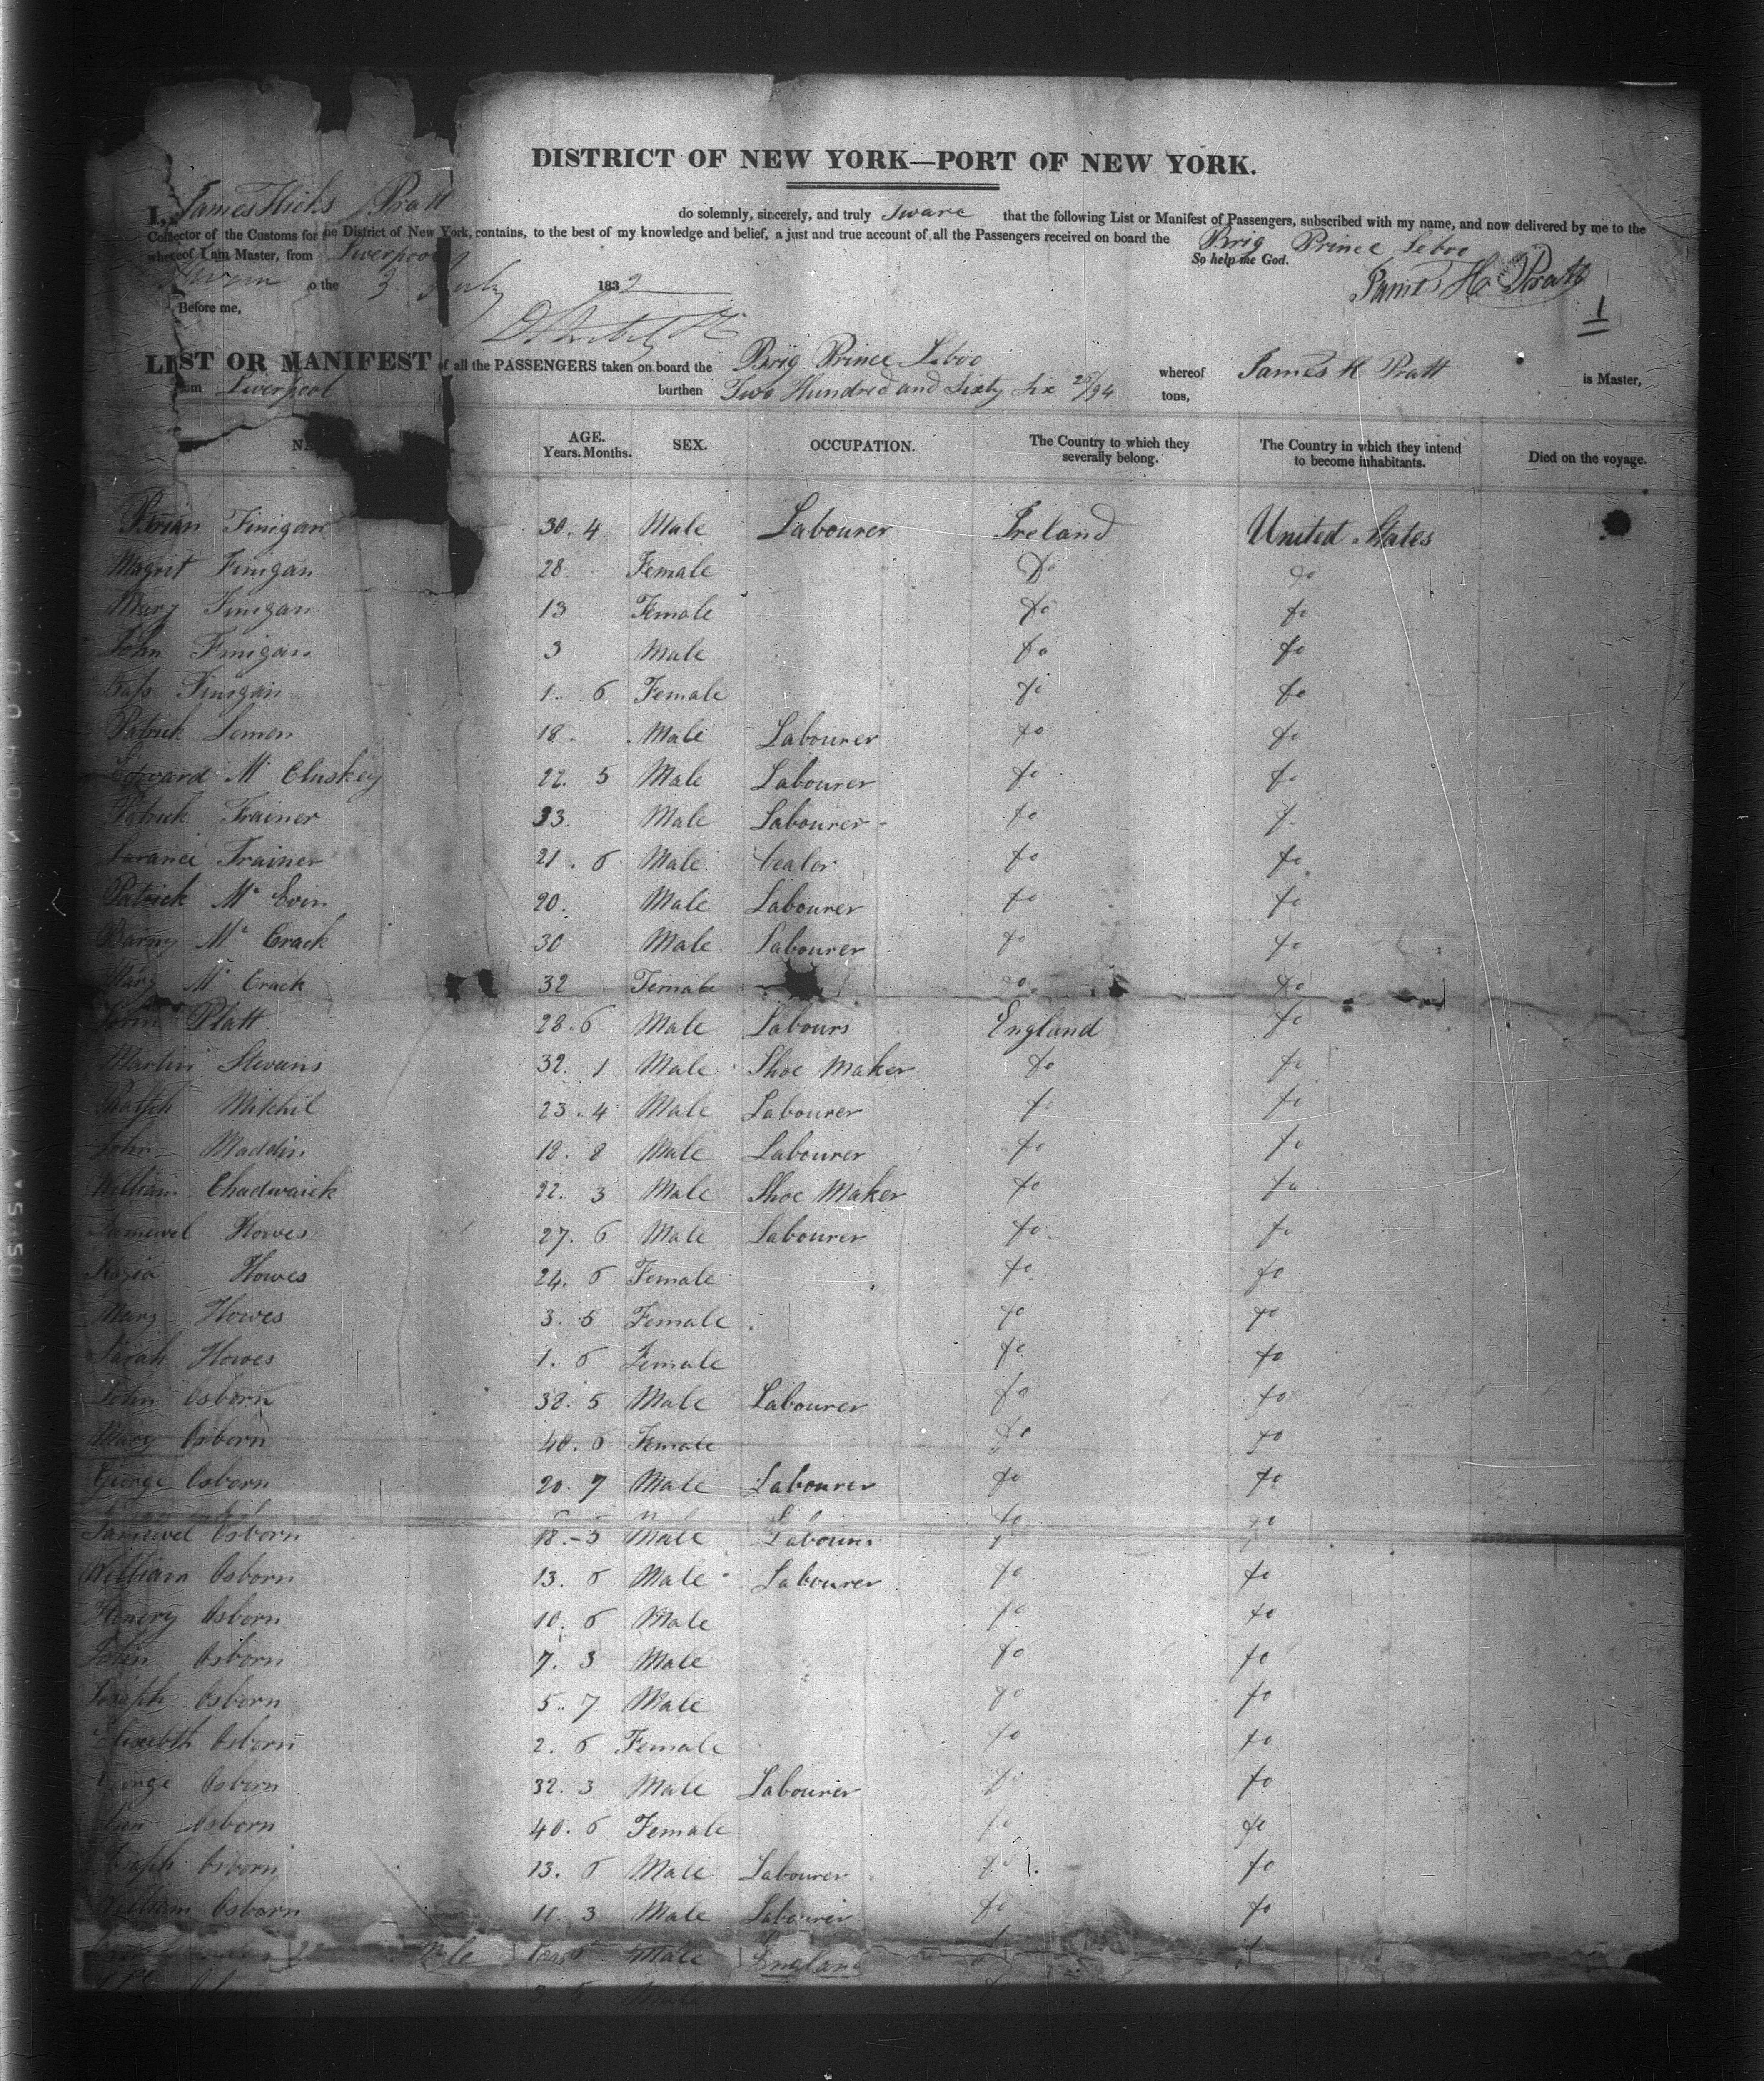 DISTRICT OF NEW YORK—PORT OF NEW YORK.
I, James Hicks Pratt do solemnly, sincerely, and truly Sware that the following List or Manifest of Passengers, subscribed with my name, and now delivered by me to the
Collector of the Customs for the District of New York, contains, to the best of my knowledge and belief, a just and true account of all the Passengers received on board the Brig Prince Leboo
whereof I am Master, from Liverpool So help me God.
Sworn to the 3 July 1832 James H Pratt
Before me,
1
LIST OR MANIFEST of all the PASSENGERS taken on board the Brig Prince Leboo whereof James H Pratt is Master,
from Liverpool burthen Two Hundred and Sixty Six 25/94 tons,
AGE. Years. Months. SEX. OCCUPATION. The Country to which they severally belong. The Country in which they intend to become inhabitants. Died on the voyage.
Brian Finigan 30. 4 Male Labourer Ireland United States
Magrit Finigan 28 Female do do
Mary Finigan 13 Female do do
John Finigan 3 Male do do
Finigan 1. 6 Female do do
Patrick Lemon 18. Male Labourer do do
Edward Mc Cluskey 22. 5 Male Labourer do do
Patrick Trainer 33. Male Labourer do do
Larance Trainer 21. 6 Male do do
Patrick Mc Evin 20. Male Labourer do do
Barny Mc Crack 30 Male Labourer do do
Mary Mc Crack 32 Female do do
John Platt 28. 6 Male Labours England do
Martin Stevens 32. 1 Male Shoe Maker do do
Ralph Mitchil 23. 4 Male Labourer do do
John Maddin 18. 8 Male Labourer do do
William Chadwaick 22. 3 Male Shoe Maker do do
Samewel Howes 27. 6 Male Labourer do do
Kezia Howes 24. 6 Female do do
Mary Howes 3. 5 Female do do
Sarah Howes 1. 6 Female do do
John Osborn 38. 5 Male Labourer do do
Mary Osborn 40. 6 Female do do
George Osborn 20. 7 Male Labourer do do
Samewel Osborn 18. 5 Male Labourer do do
William Osborn 13. 6 Male Labourer do do
Henery Osborn 10. 6 Male do do
John Osborn 7. 3 Male do do
Joseph Osborn 5. 7 Male do do
Elizebth Osborn 2. 6 Female do do
George Osborn 32. 3 Male Labourer do do
Ann Osborn 40. 6 Female do do
Joseph Osborn 13. 6 Male Labourer do do
William Osborn 11. 3 Male Labourer do do
Male England
Male